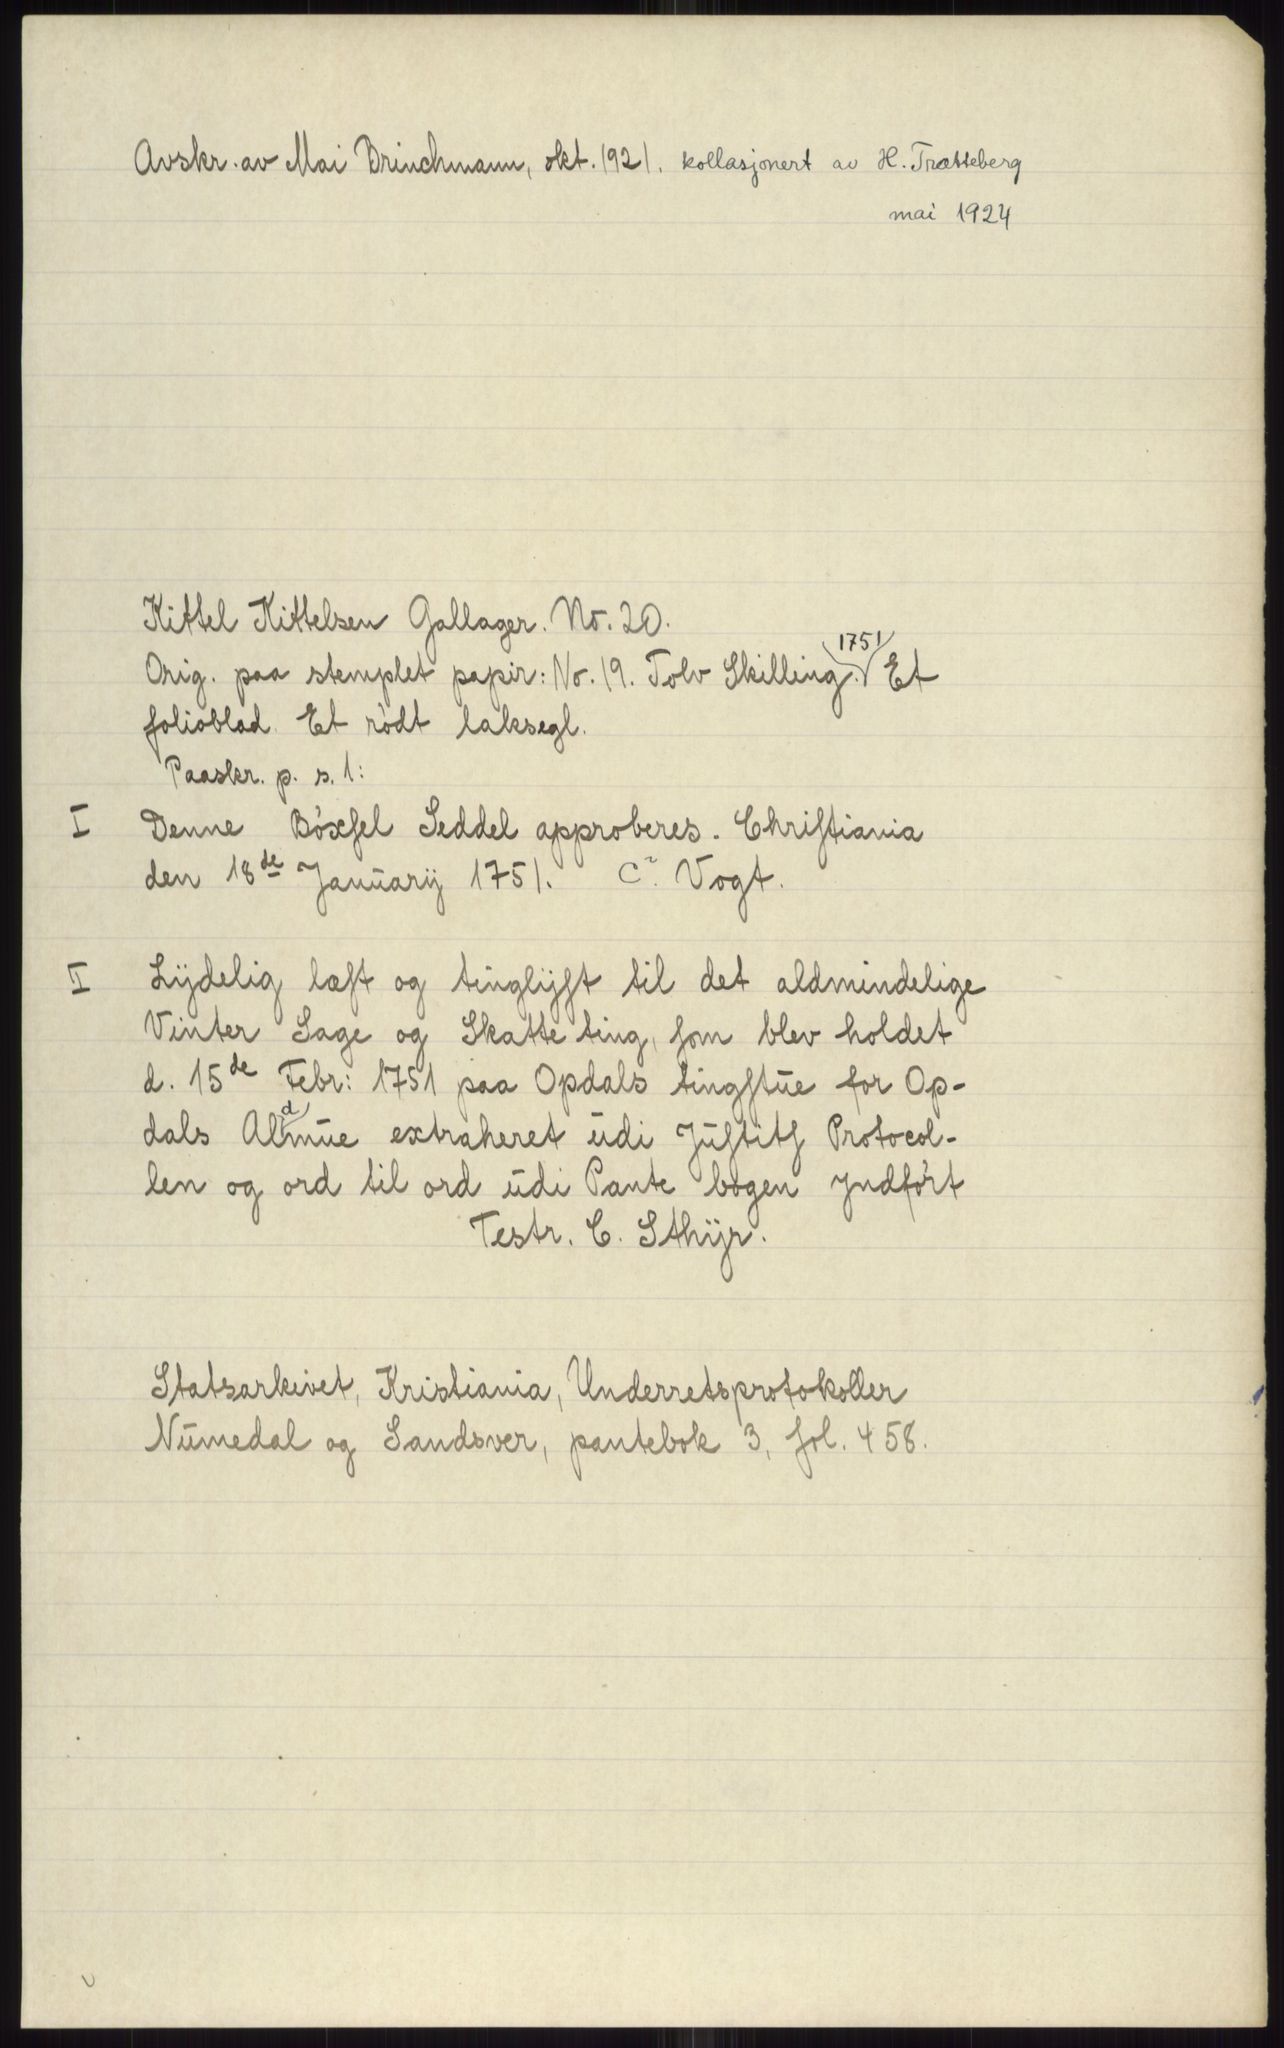 Avskr. av Mai Brinchmann, okt. 1921. kollasjonert av H. Trætteberg
mai 1924
Kittel Kittelsen Gallager. No. 20.
1751
Orig. paa stemplet papir: No. 19. Tolv Skilling. Et
folioblad. Et rödt laksegl.
Paaskr. p. s. 1:
I Denne Böxsel Seddel approberes. Christiania
den 18de Januarij 1751. Vogt.
II Lÿdelig læst og tinglÿst til det aldmindelige
Vinter Sage og Skatte ting, som blev holdet
d. 15de Febr: 1751 paa Opdals tingstue for Op-
dals Aldmue extraheret udi Justits Protocol-
len og ord til ord udi Pante bogen Jndfört
Testr. C. Sthÿr.
Statsarkivet, Kristiania, Underretsprotokoller
Numedal og Sandsver, pantebok 3, fol. 458.